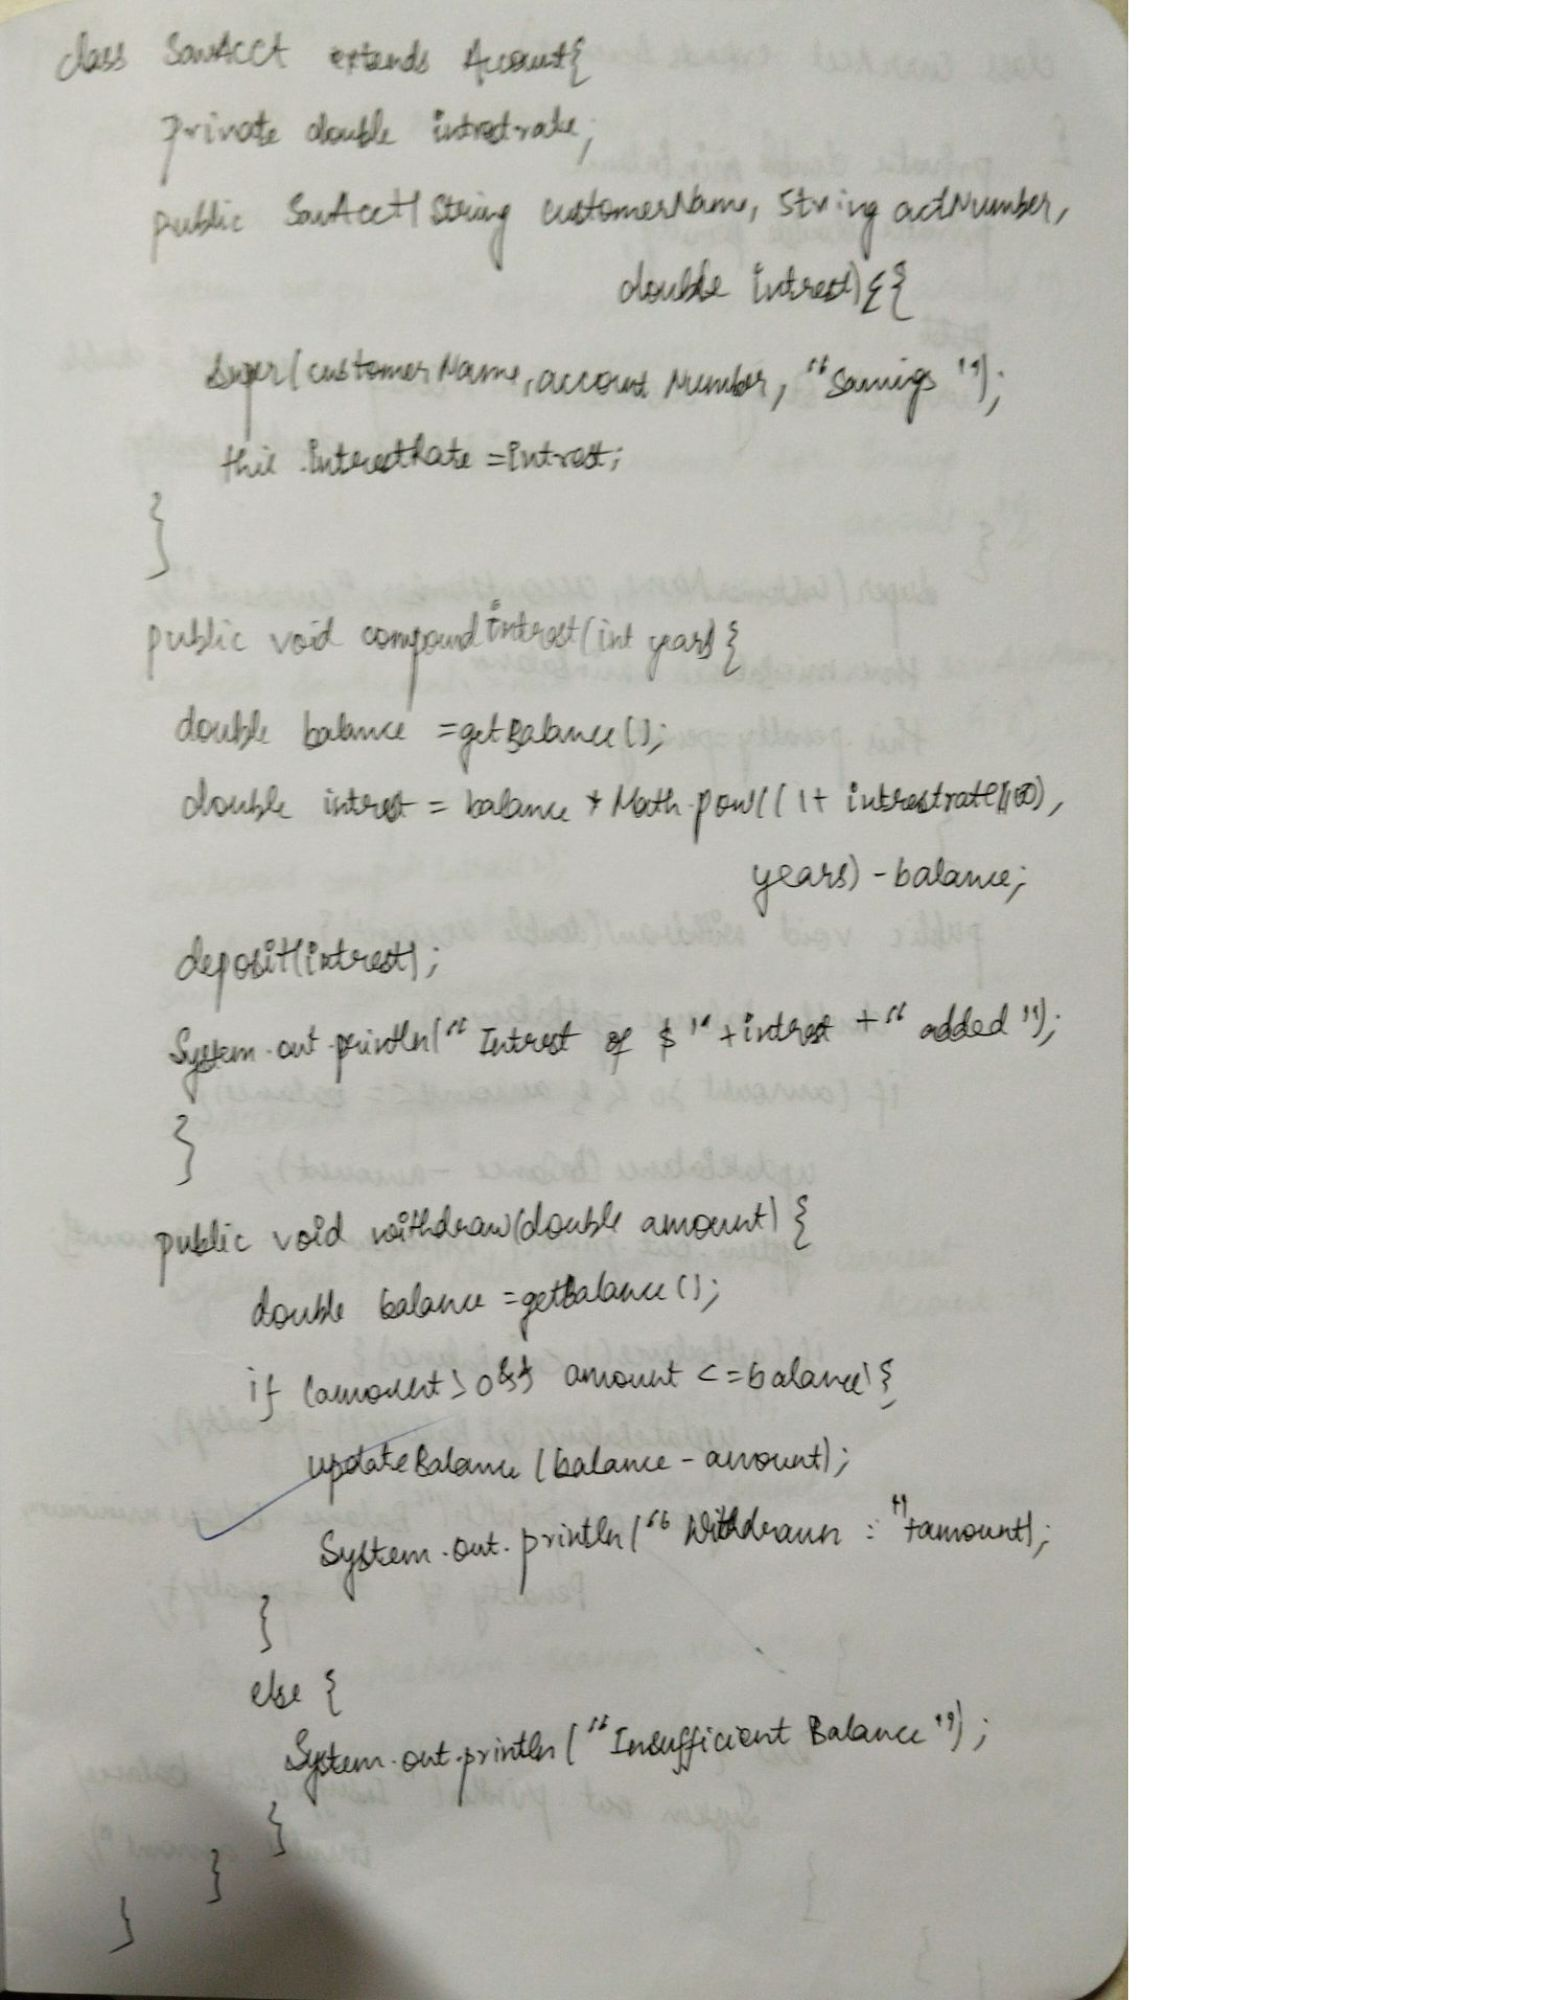 class SavAcct extends Account{
private double intrestrate;
public SavAcct(String customerName, String actNumber,
double intrest){{
super(customerName, account Number, "Savings");
this .interestRate = intrest;
}
public void compound intrest(int years) {
double balance = getBalance();
double intrest = balance * Math.pow((1+ intrestrate/100),
years) - balance;
deposit(intrest);
System.out.println("Intrest of $ "+intrest +" added");
}
public void withdraw(double amount) {
double balance = getBalance();
if (amount > 0 && amount <= balance) {
updateBalance (balance - amount);
System.out.println("Withdrawn : "+amount);
}
else {
System.out.println("Insufficient Balance");
}
}
}